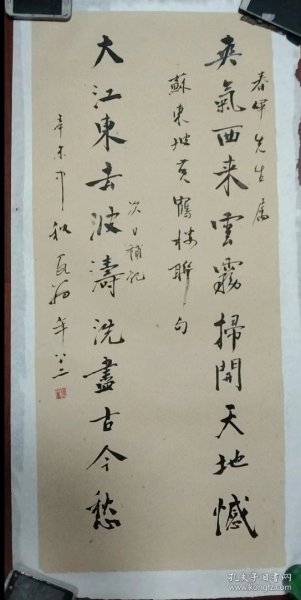 春華先生属
爽氣西来雲霧掃開天地憾
蘇東坡黄鶴楼聯句
次日補記
大江東去波濤洗盡古今愁
辛未中秋瓦翁年八十二
孔夫子旧书网
www.kongfz.com